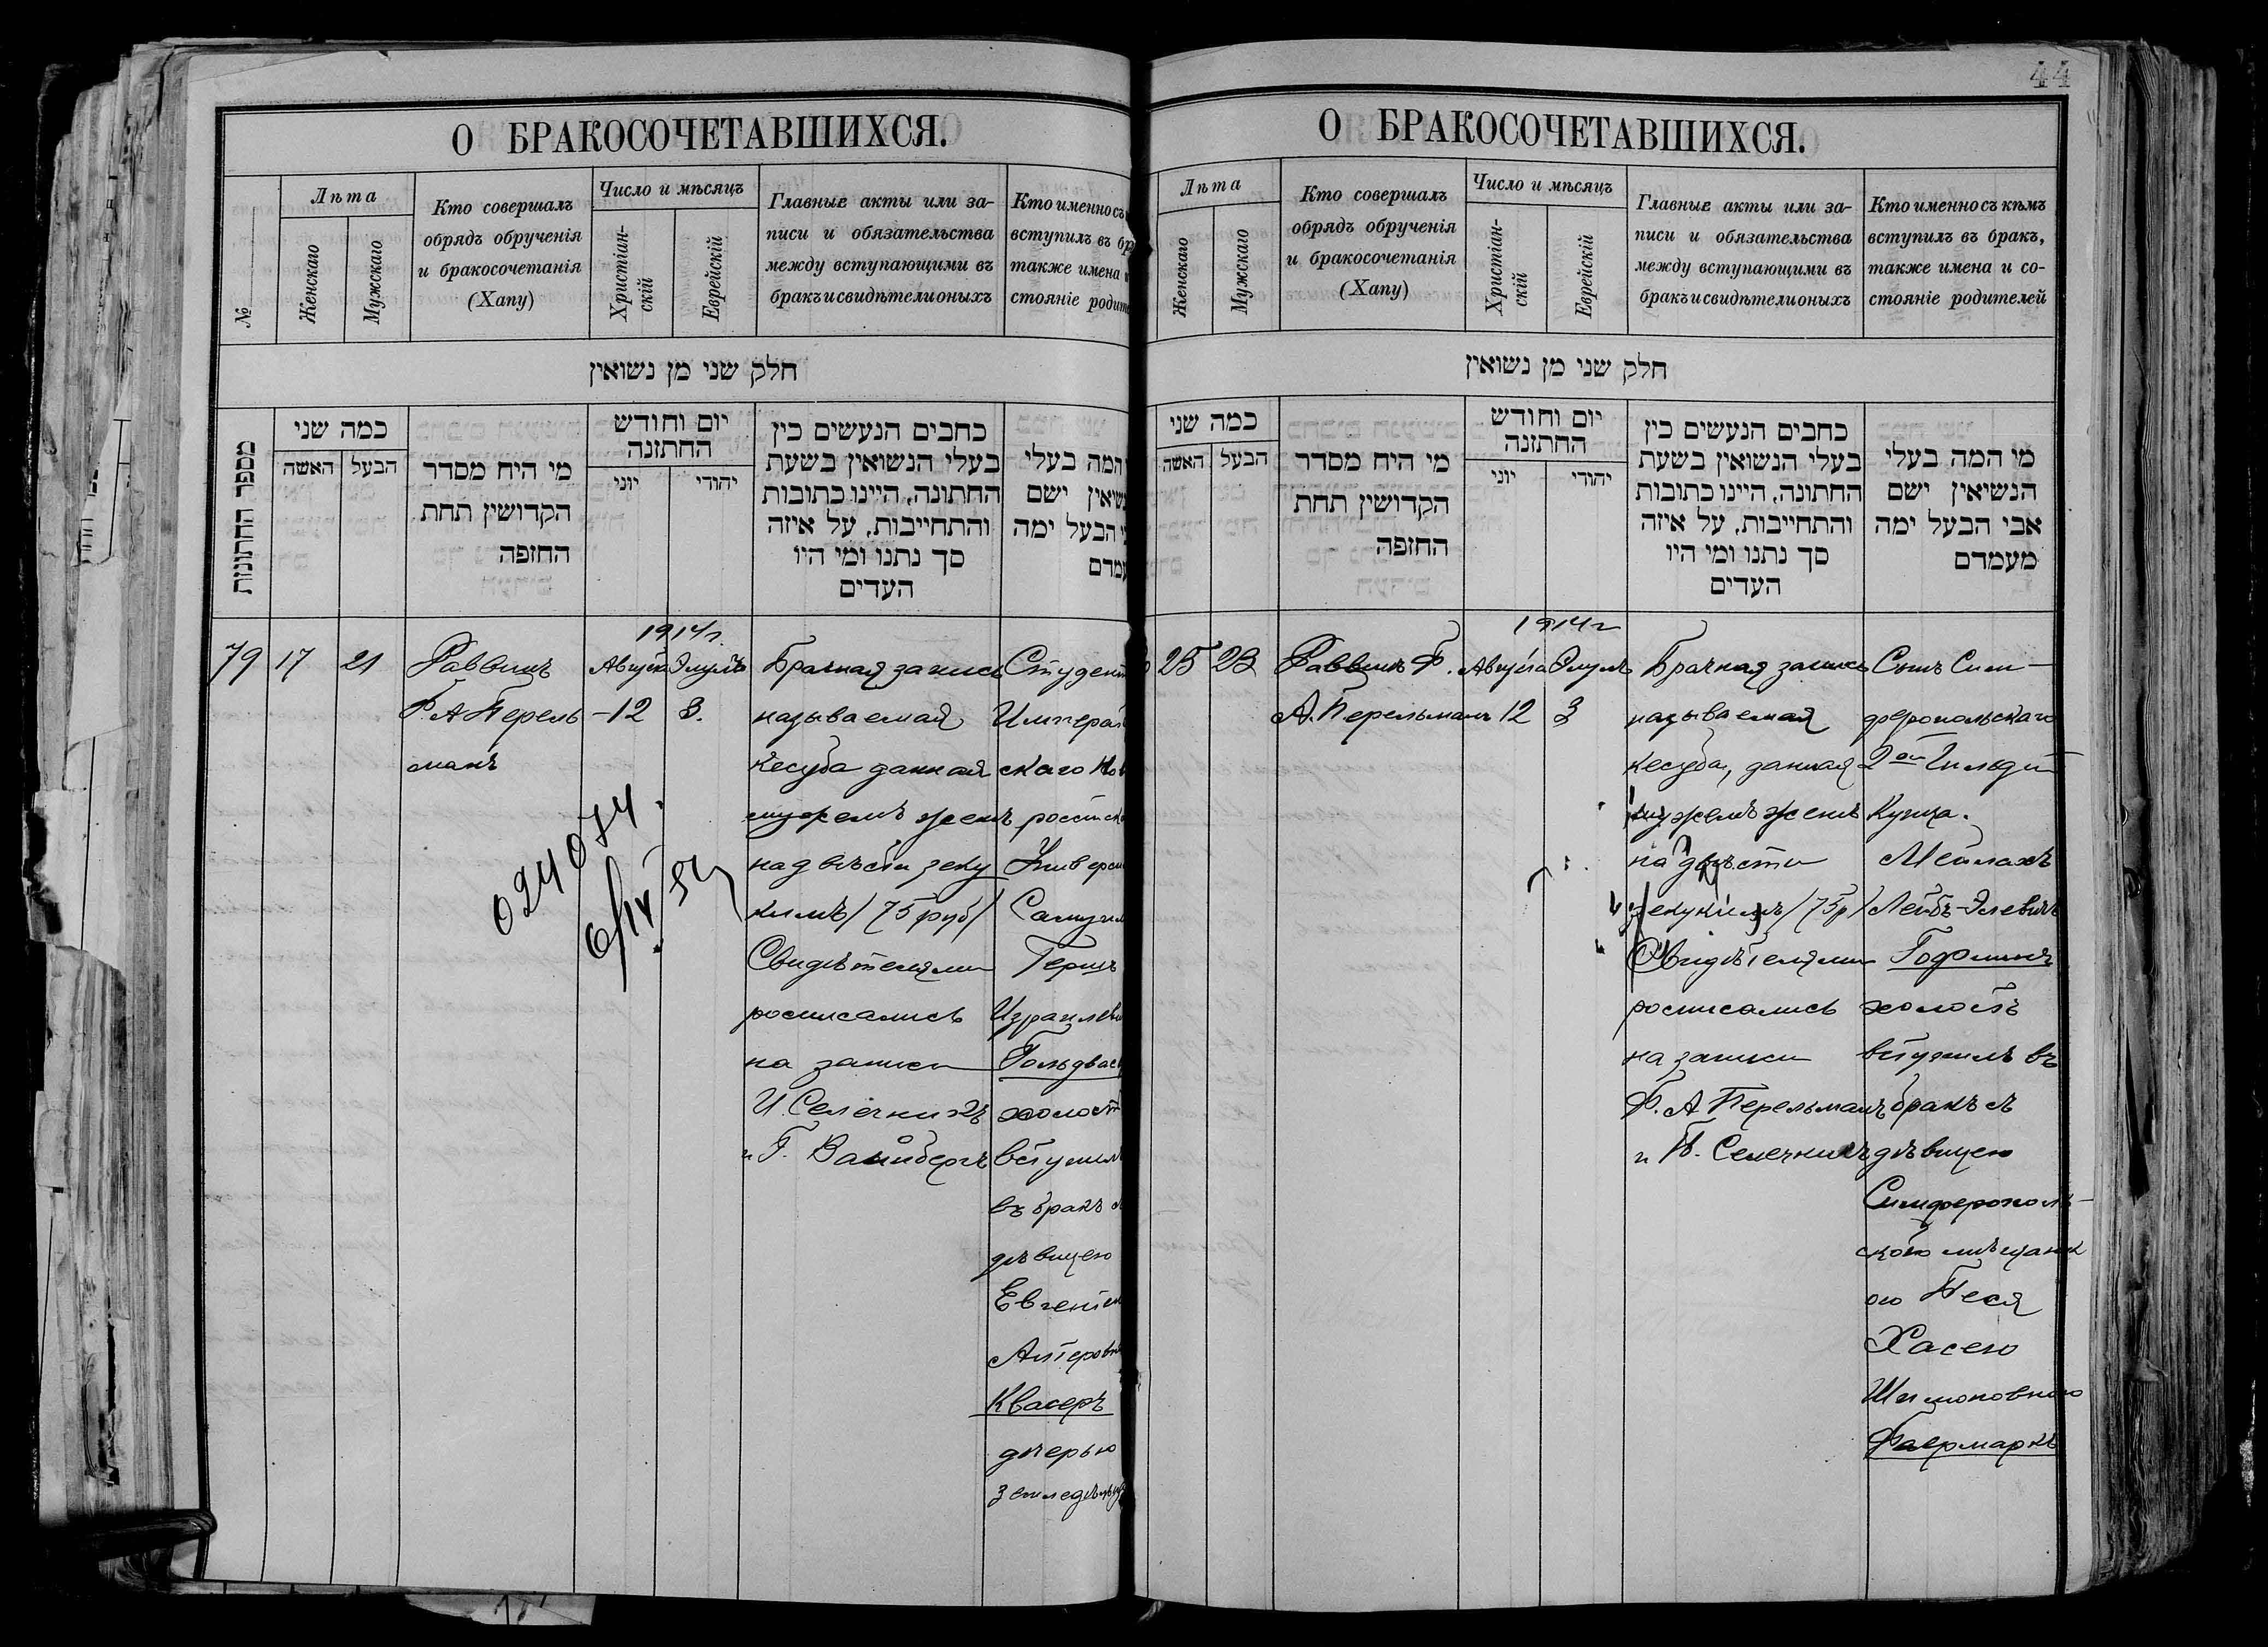 44
О БРАКОСОЧЕТАВШИХСЯ.
№
Лѣта
Женскаго
Мужскаго
Кто совершалъ
обрядъ обрученія
и бракосочетанія
(Хапу)
Число и мѣсяцъ
Христіан-
скій
Еврейскій
Главные акты или за-
писи и обязательства
между вступающими въ
бракъ и свидѣтели оныхъ
Кто именно съ
вступилъ въ бра
также имена и
стояніе родите
חלק שני מן נשואין
מספר החתונות
כמה שני
האשה
הבעל
מי היח מסדר
הקדושין תחת
החופה
יום וחודש
החתונה
יוני
יהודי
כחבים הנעשים כין
בעלי הנשואין בשעת
החתונה, היינו כתובות
והתחייבות, על איזה
סך נתנו ומי היו
העדים
המה בעלי
שואין ישם
הבעל ימה
עמדם
79
17
21
Раввинъ
Ф. А Перель
манъ
1914 г.
Августа
-12
Элулъ
3.
Брачная запись
называемая
кесуба данная
мужемъ женѣ
на двѣсти зеку
кимъ / 75 руб /
Свидѣтелями
росписались
на записи
И. Селечникъ
и Г. Вайнбергъ
Студентъ
Императ
скаго Нов
россійска
Универси
Самуил
Герцъ
Израилеви
Гольдвас
холостъ
вступилъ
въ бракъ съ
дѣвицею
Евгеніею
Алтеровн
Квасеръ
дчерью
земледѣльц
024074.
6/IV 54
О БРАКОСОЧЕТАВШИХСЯ.
Лѣта
Женскаго
Мужскаго
Кто совершалъ
обрядъ обрученія
и бракосочетанія
(Хапу)
Число и мѣсяцъ
Христіан-
скій
Еврейскій
Главные акты или за-
писи и обязательства
между вступающими въ
бракъ и свидѣтели оныхъ
Кто именно съ кѣмъ
вступилъ въ бракъ,
также имена и со-
стояніе родителей
חלק שני מן נשואין
כמה שני
האשה
הבעל
מי היח מסדר
הקדושין תחת
החופה
יום וחודש
החתונה
יוני
יהודי
כחבים הנעשים כין
בעלי הנשואין בשעת
החתונה, היינו כתובות
והתחייבות, על איזה
סך נתנו ומי היו
העדים
מי המה בעלי
הנשיאין ישם
אבי הבעל ימה
מעמדם
25
23
Раввинъ Ф.
А. Перельманъ
1914 г
Августа
12
Элулъ
3
Брачная запись
называемая
кесуба, данная
мужемъ женѣ
на двѣсти
зекукимъ / 75 р /
Свидѣтелями
росписались
на записи
Ф. А Перельманъ
и И. Селечникъ
Сынъ Сим-
феропольскаго
2ой Гильдіи
Купца.
Мейлахъ
Лейбъ-Элевичъ
Гофминъ
холостъ
вступилъ въ
бракъ съ
дѣвицею
Симферополь-
скою мѣщанк
ою Песя
Хасею
Шимоновною
Фаермаркъ